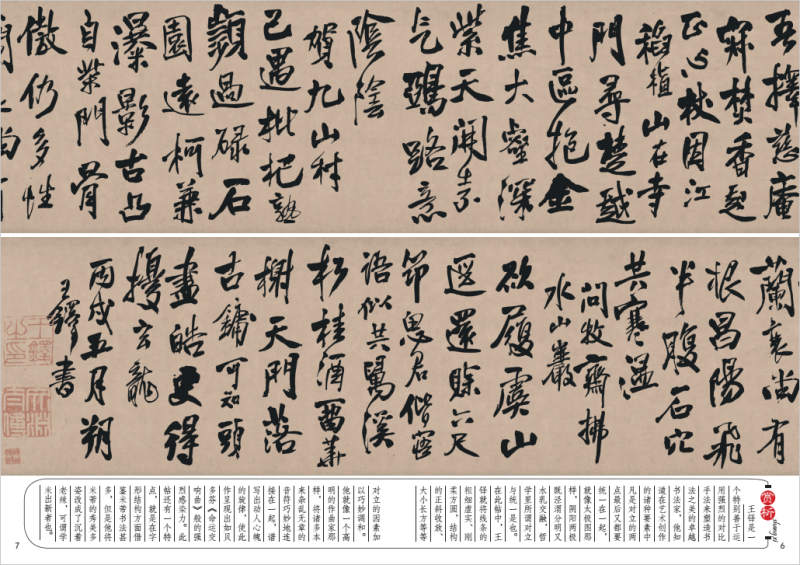 吾擇慈庵
寐焚香起
正心杖因江
山在寺
門尋楚越
中區抱金
焦大壑深
紫天開素
路意
陰陰
賀九山村
已遇枇杷熟
過碌石
園遠柯兼
瀑影古凸
自柴門骨
傲仍多性
蘭裏尚有
根昌陽飛
半腹石穴
共寒溫
問牧齋拂
水山巖
欲履虞山
還賒六尺
節思君偕
語似共鷺溪
杉桂酒
榭天門落
古鏞可知頭
畫皓更得
擾玄龍
丙戌五月朔
王鐸書
赏析
shangxi
王铎是一
个特别善于运
用强烈的对比
手法来塑造书
法之美的卓越
书法家，他知
道在艺术创作
的诸种要素中
凡是对立的两
点最后又都要
统一在一起，
就像太极图那
样，阴阳两极
既泾渭分明又
水乳交融，哲
学里所谓对立
与统一是也。
在此帖中，王
铎就将线条的
粗细虚实、刚
柔方圆，结构
的正斜收放、
大小长方等等
对立的因素加
以巧妙调和。
他就像一个高
明的作曲家那
样，将诸多本
来杂乱无章的
音符巧妙地连
接在一起，谱
写出动人心魄
的旋律，使此
作呈现出如贝
多芬《命运交
响曲》般的强
烈感染力。此
帖还有一个特
点，就是在字
形结构方面借
鉴米芾书法甚
多，但是他将
米芾的秀美多
姿改成了沉着
老辣，可谓学
米出新者也。
6
7